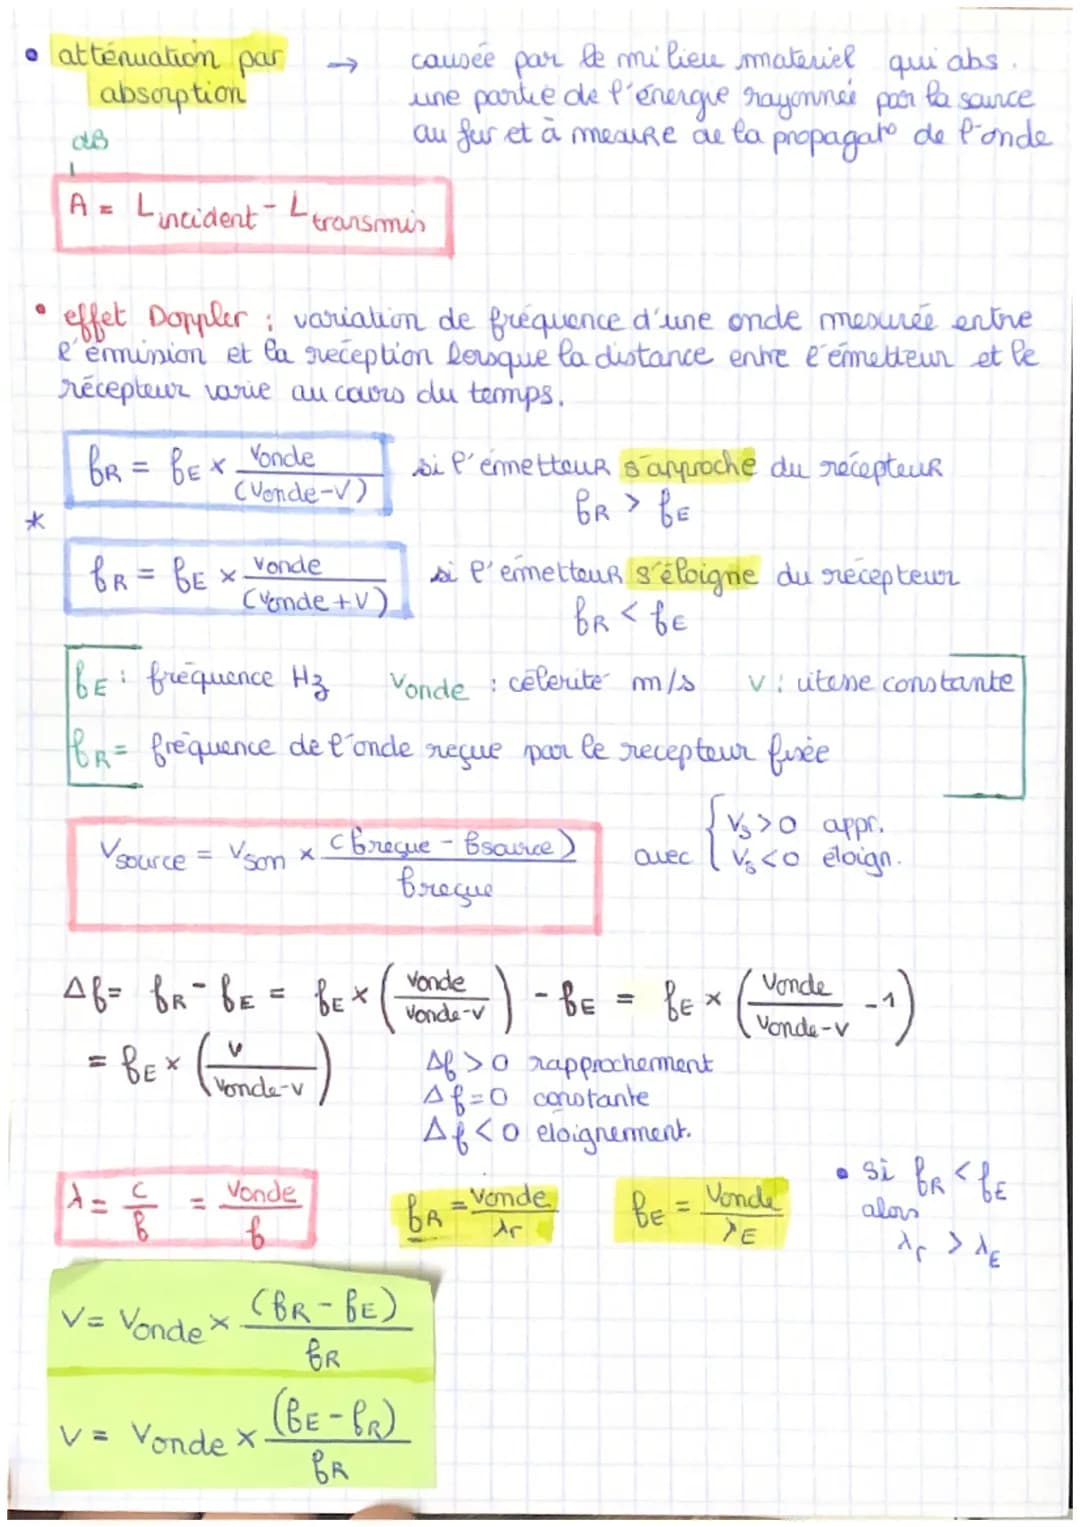 • atténuation par → causée par le milieu materiel qui abs.
absorption une partie de l'énergie rayonnée par la source
dB au fur et à mesure de la propagat° de l'onde
A = Lincident - Ltransmis
• effet Doppler : variation de fréquence d'une onde mesurée entre
l'émmission et la reception lorsque la distance entre l'émetteur et le
récepteur varie au cours du temps.
fR = fE × Vonde / (Vonde-V) si l'émetteur s'approche du récepteur
fR > fE
*
fR = fE × Vonde / (Vonde+V) si l'émetteur s'éloigne du récepteur
fR < fE
fE : fréquence Hz Vonde : célérité m/s V : vitesse constante
fR = fréquence de l'onde reçue par le recepteur fixée
Vsource = Vson × (freçue - fsource) / freçue avec { Vs>0 appr.
Vs<0 éloign.
Δf= fR - fE = fE × (Vonde / Vonde-v) - fE = fE × (Vonde / Vonde-v -1)
= fE × (v / Vonde-v) Δf>0 rapprochement
Δf=0 constante
Δf<0 eloignement.
λ = c / f = Vonde / f fR = Vonde / λr fE = Vonde / λE • si fR < fE
alors
λr > λE
V= Vonde × (fR - fE) / fR
V= Vonde × (fE - fR) / fR